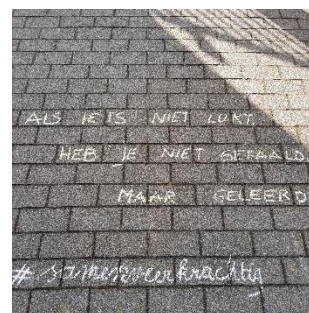 ALS IETS NIET LUKT
HEB JE NIET GEFAALD.
MAAR GELEERD
#samenveerkrachtig